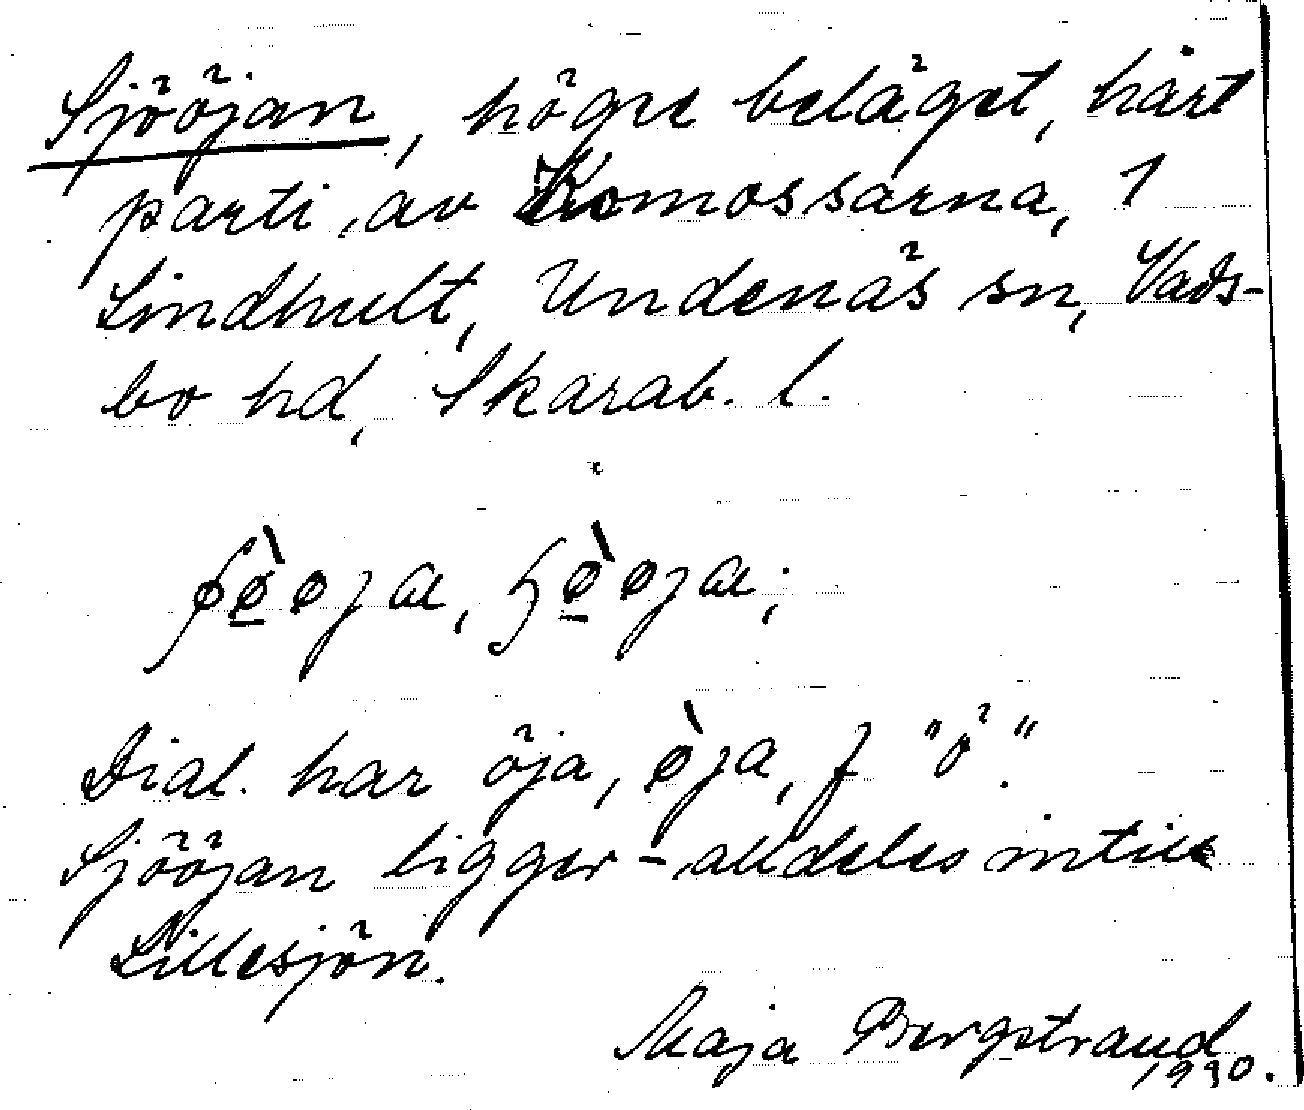 Sjööjan, högre beläget, hårt
parti av Komossarna, 1
Lindhult, Undenäs sn, Vads-
bo hd, Skarab. l.
Dial. har öja, ø̀ja, f "ö".
Sjööjan ligger alldeles intill
Lillesjön.
Maja Bergstrand
1930.